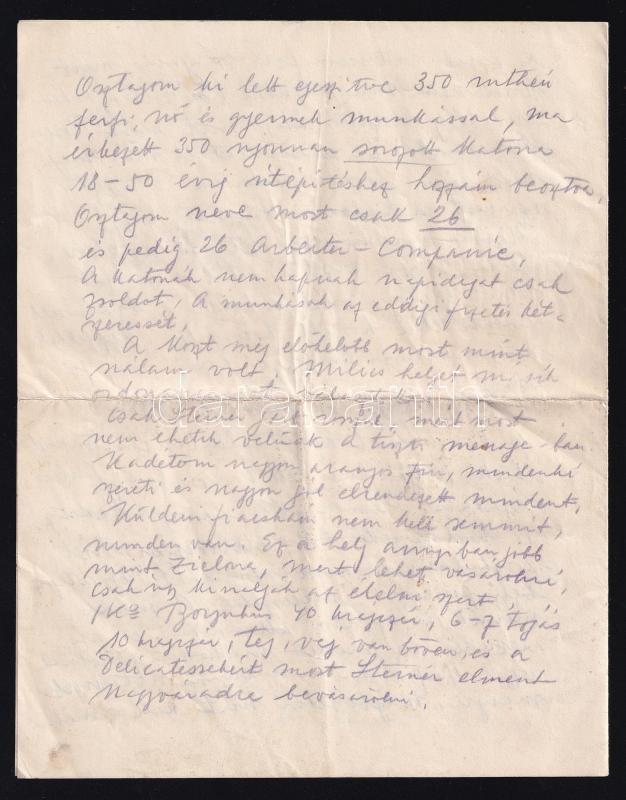 Osztagom ki lett egeszitve 350 ruthén
ferfi, nő és gyermek munkással, ma
érkezett 350 ujonnan sorozott katona
18-50 évig útépitéshez hozzám beosztva.
Osztagom neve most csak 26
és pedig 26 Arbeiter-Companie.
A katonák nem kapnak napidijat csak
zsoldot, A munkásak az eddigi fizetés két-
szeresét.
A koszt még előkelőbb most mint
nálam volt. Milics helyet
darabanth
csak Steiner most
nem ehetik velünk a tiszti menage-ban
Kadetom nagyon aranyos fiu, mindenki
szereti és nagyon jól elrendezett mindent.
Küldeni fiacskám nem kell semmit,
minden van. Ez a hely annyiban jobb
mint Zielona, mert lehet vásárolni,
csak úgy kinálják az élelmi szert,
1 Kg 40 krajczár, 6-7 tojás
10 krajczár, tej, vaj van bőven, és a
Delicatessekért most Steiner elment
Nagyváradra bevásárolni.